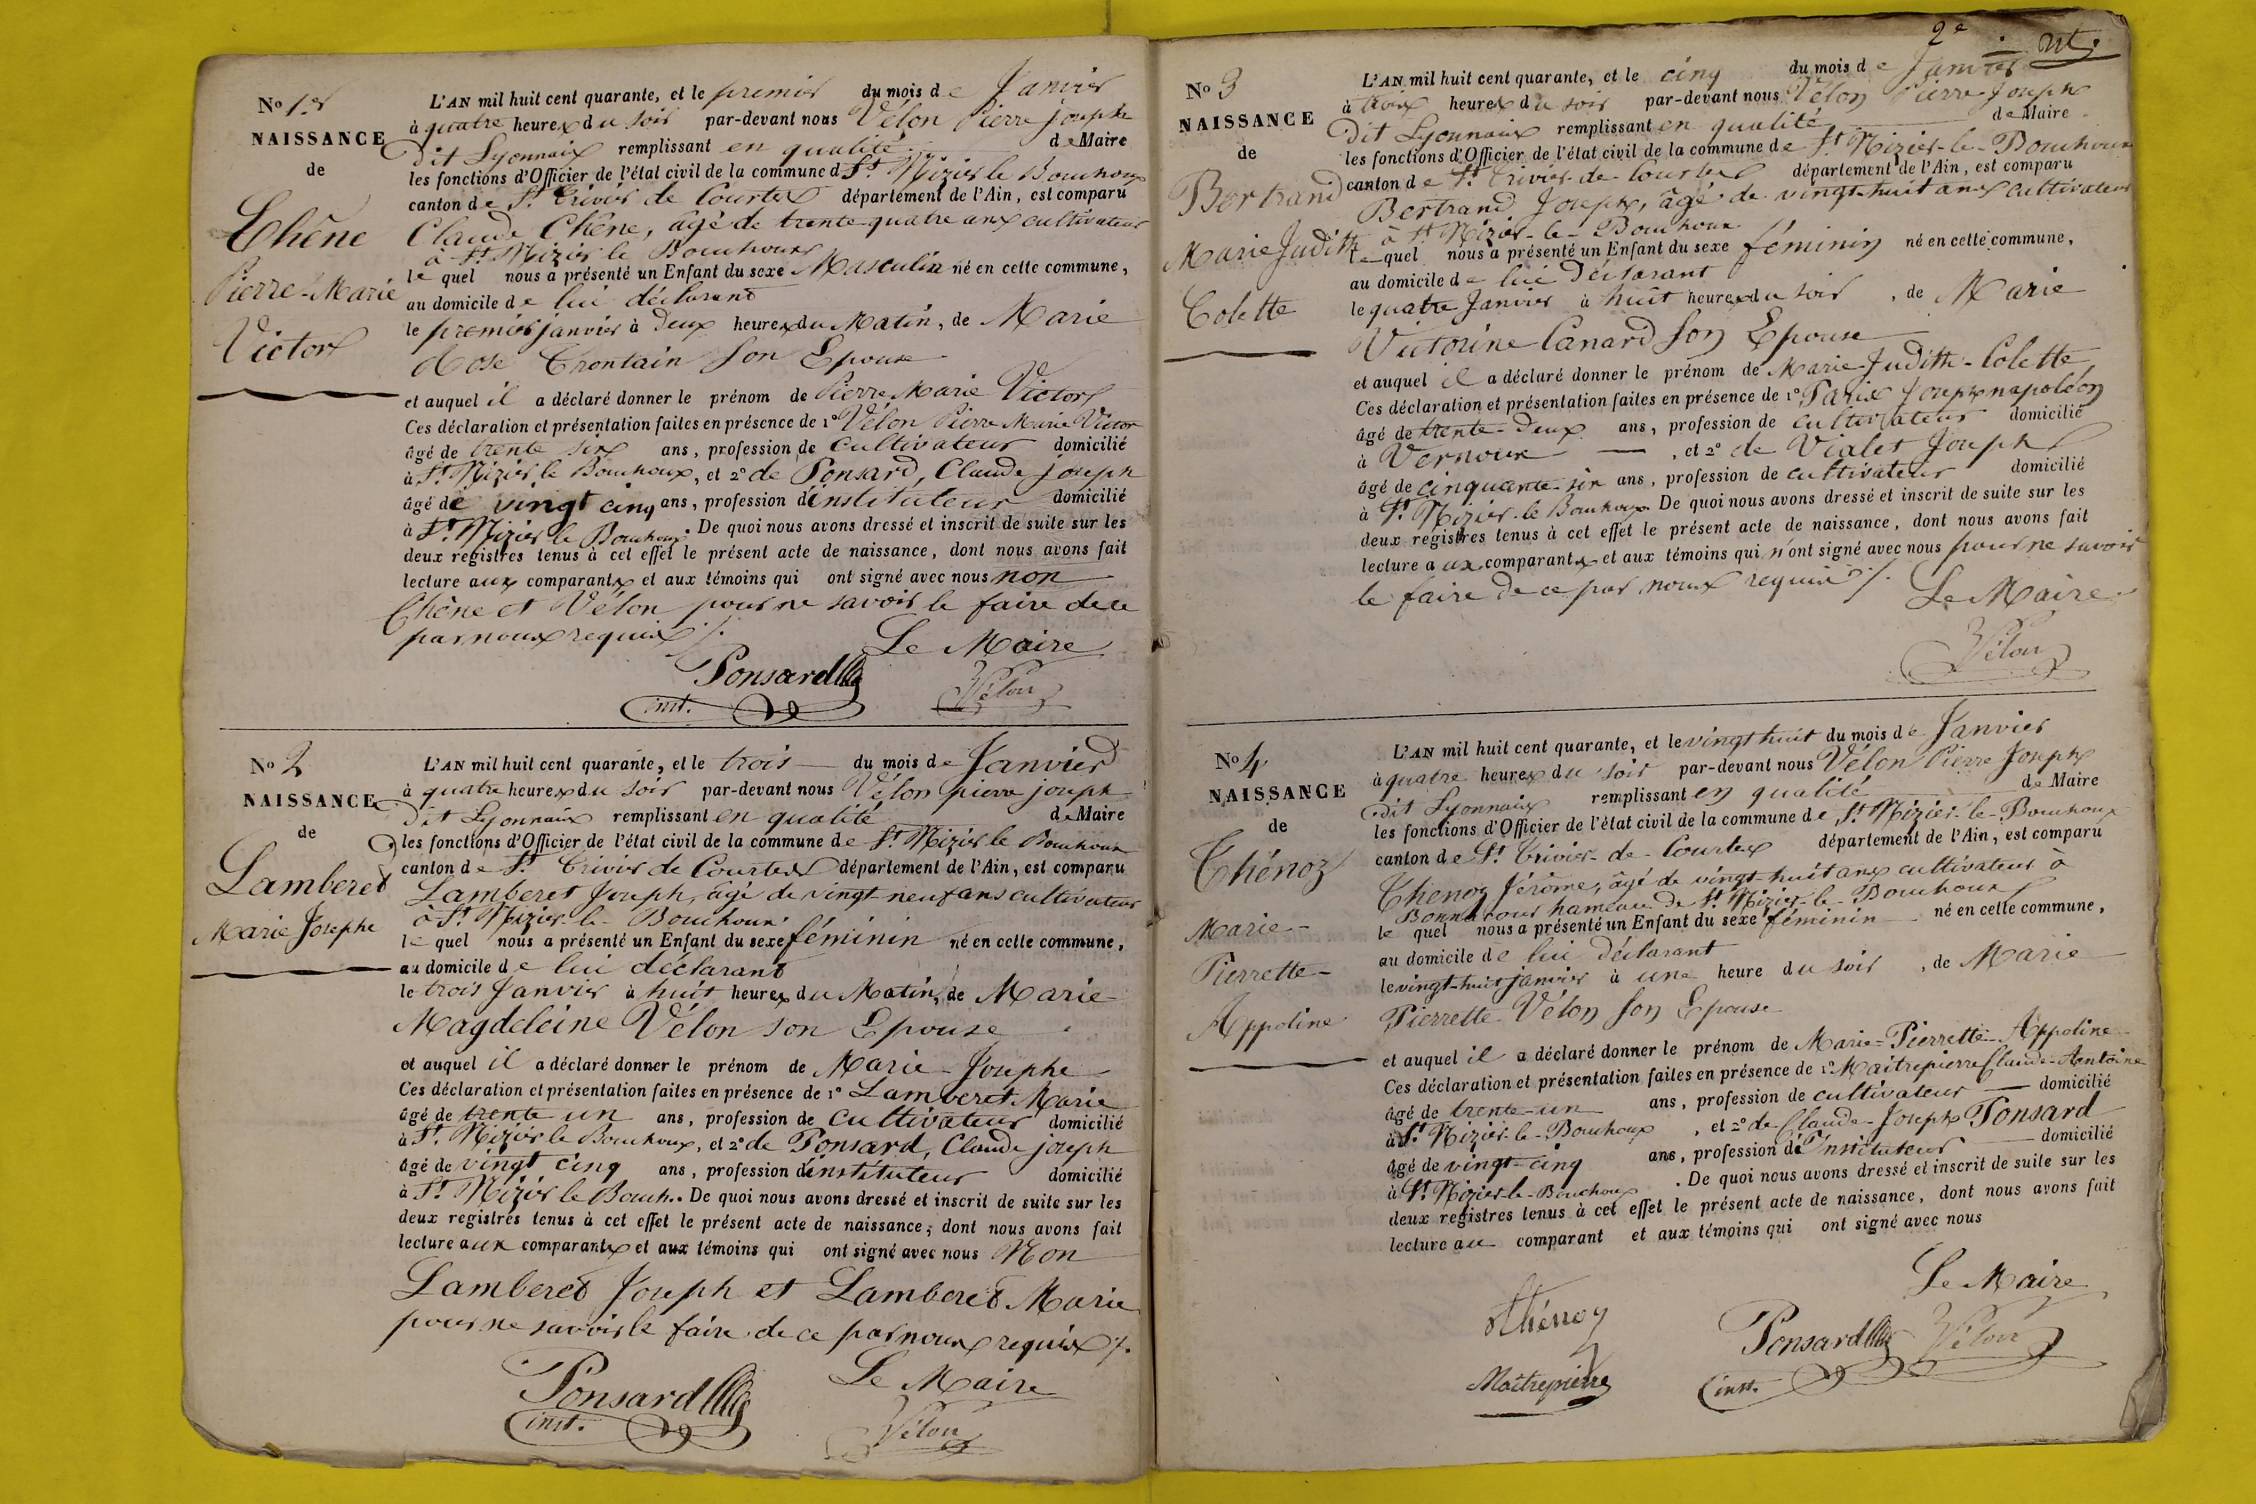 No 1.er
NAISSANCE
de
Chêne
Pierre-Marie
Victor
L'AN mil huit cent quarante, et le premier du mois de Janvier
à quatre heures du soir par-devant nous Vélon Pierre joseph
dit Lyonnais remplissant en qualité de Maire
les fonctions d'Officier de l'état civil de la commune d St. Nizier le Bouchoux
canton de St. Trivier de Courtes département de l'Ain, est comparu
Claude Chêne, âgé de trente quatre ans cultivateur
à St. Nizier le Bouchoux
le quel nous a présenté un Enfant du sexe Masculin né en cette commune,
au domicile de lui déclarant
le premier janvier à deux heures du Matin, de Marie
Rose Trontain son Epouse
et auquel il a déclaré donner le prénom de Pierre Marie Victor
Ces déclaration et présentation faites en présence de 1° Vélon Pierre Marie Victor
âgé de trente six ans, profession de cultivateur domicilié
à St. Nizier le Bouchoux, et 2° de Ponsard, Claude joseph
âgé de vingt cinq ans, profession d'instituteur domicilié
à St. Nizier le Bouchoux. De quoi nous avons dressé et inscrit de suite sur les
deux registres tenus à cet effet le présent acte de naissance, dont nous avons fait
lecture aux comparants et aux témoins qui ont signé avec nous non
Chêne et Vélon pour ne savoir le faire de ce
par nous requis ./.
Le Maire
Ponsard
inst.
Vélon
No 2
NAISSANCE
de
Lamberet
Marie Josephe
L'AN mil huit cent quarante, et le trois du mois de Janvier
à quatre heures du soir par-devant nous Vélon pierre joseph
dit Lyonnais remplissant en qualité de Maire
les fonctions d'Officier de l'état civil de la commune de St Nizier le Bouchoux
canton de St. Trivier de Courtes département de l'Ain, est comparu
Lamberet Joseph, âgé de vingt neuf ans cultivateur
à St. Nizier le Bouchoux
le quel nous a présenté un Enfant du sexe féminin né en cette commune,
au domicile de lui déclarant
le trois Janvier à huit heures du Matin, de Marie
Magdeleine Vélon son Epouse
et auquel il a déclaré donner le prénom de Marie-Josephe
Ces déclaration et présentation faites en présence de 1° Lamberet Marie
âgé de trente un ans, profession de cultivateur domicilié
à St. Nizier le Bouchoux, et 2° de Ponsard, Claude joseph
âgé de vingt cinq ans, profession d'instituteur domicilié
à St. Nizier le Bouch. De quoi nous avons dressé et inscrit de suite sur les
deux registres tenus à cet effet le présent acte de naissance, dont nous avons fait
lecture aux comparants et aux témoins qui ont signé avec nous Non
Lamberet Joseph et Lamberet Marie
pour ne savoir le faire de ce par nous requis ./.
Le Maire
Ponsard
inst.
Vélon
2e
No 3
NAISSANCE
de
Bertrand
Marie Judith
Colette
L'AN mil huit cent quarante, et le cinq du mois de Janvier
à trois heures du soir par-devant nous Vélon Pierre Joseph
dit Lyonnais remplissant en qualité de Maire
les fonctions d'Officier de l'état civil de la commune de St Nizier-le-Bouchoux
canton de St. Trivier-de-Courtes département de l'Ain, est comparu
Bertrand Joseph, âgé de vingt-huit ans cultivateur
à St. Nizier-le-Bouchoux
le quel nous a présenté un Enfant du sexe féminin né en cette commune,
au domicile de lui déclarant
le quatre Janvier à huit heures du soir, de Marie
Victorine Canard son Epouse
et auquel il a déclaré donner le prénom de Marie-Judith-Colette
Ces déclaration et présentation faites en présence de 1° Parix Joseph napoléon
âgé de trente-deux ans, profession de cultivateur domicilié
à Vernoux, et 2° de Vialet Joseph
âgé de cinquante-six ans, profession de cultivateur domicilié
à St. Nizier-le-Bouchoux. De quoi nous avons dressé et inscrit de suite sur les
deux registres tenus à cet effet le présent acte de naissance, dont nous avons fait
lecture aux comparants et aux témoins qui n'ont signé avec nous pour ne savoir
le faire de ce par nous requis ./.
Le Maire
Vélon
No 4
NAISSANCE
de
Thénoz
Marie-
Pierrette-
Appoline
L'AN mil huit cent quarante, et le vingt huit du mois de Janvier
à quatre heures du soir par-devant nous Vélon Pierre Joseph
dit Lyonnais remplissant en qualité de Maire
les fonctions d'Officier de l'état civil de la commune de St. Nizier-le-Bouchoux
canton de St. Trivier-de-Courtes département de l'Ain, est comparu
Thenoz Jérôme, âgé de vingt-huit ans cultivateur à
hameau de St. Nizier-le-Bouchoux
le quel nous a présenté un Enfant du sexe féminin né en cette commune,
au domicile de lui déclarant
le vingt-huit janvier à une heure du soir, de Marie
Pierrette Vélon son Epouse
et auquel il a déclaré donner le prénom de Marie-Pierrette-Appoline
Ces déclaration et présentation faites en présence de 1° Maitrepierre Claude-Antoine
âgé de trente-un ans, profession de cultivateur domicilié
à St. Nizier-le-Bouchoux, et 2° de Claude-Joseph Ponsard
âgé de vingt-cinq ans, profession d'Instituteur domicilié
à St. Nizier-le-Bouchoux. De quoi nous avons dressé et inscrit de suite sur les
deux registres tenus à cet effet le présent acte de naissance, dont nous avons fait
lecture au comparant et aux témoins qui ont signé avec nous
Le Maire
Thénoz
Ponsard
Vélon
Maitrepierre
inst.